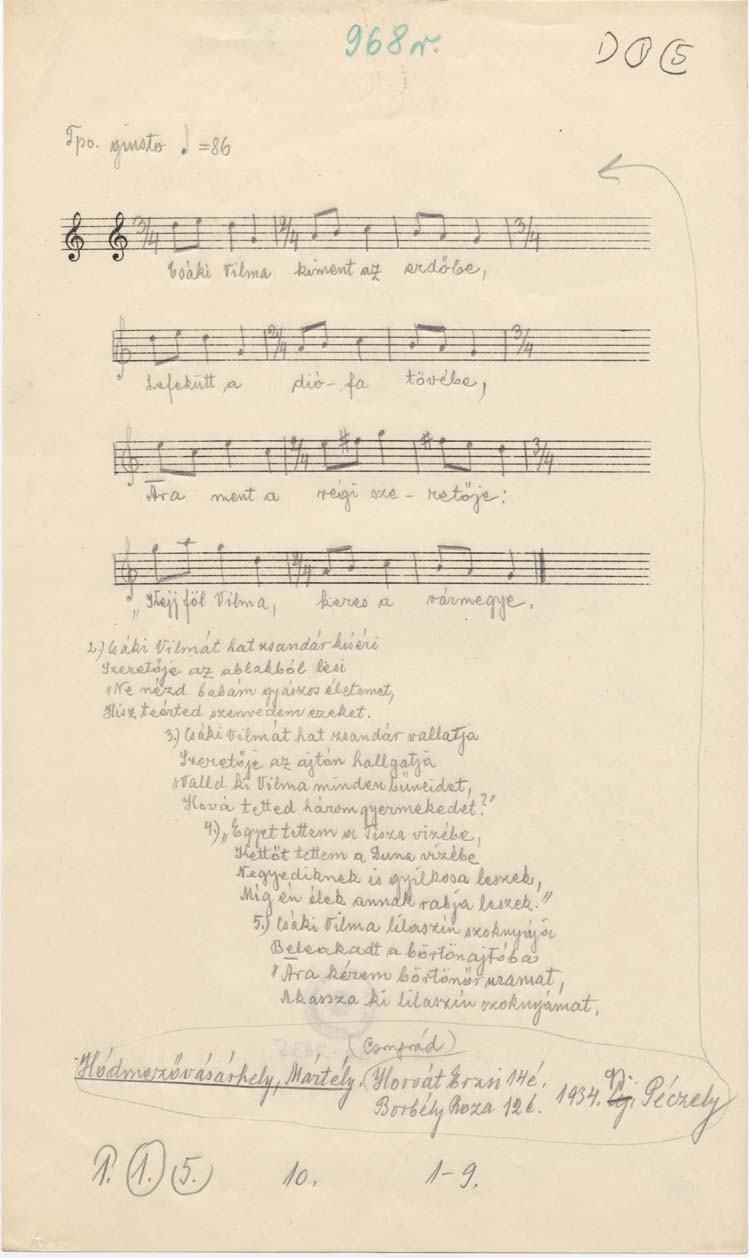 968r.
D I 5
Tpo. giusto ♩=86
3/4 2/4 3/4
Csáki Vilma kiment az erdőbe,
2/4 3/4
Lefekütt a dió-fa tövébe,
2/4 3/4
Ara ment a régi sze-retője:
2/4
„Kejj föl Vilma, keres a vármegye.
2.) Csáki Vilmát hat zsandár kíséri
Szeretője az ablakból lesi
„Ne nézd babám gyászos életemet,
Hisz teérted szenvedem ezeket.
3.) Csáki Vilmát hat zsandár vallatja
Szeretője az ajtón hallgatja
„Valld ki Vilma minden bűneidet,
Hová tetted három gyermekedet?"
4.) „Egyet tettem a Tisza vizébe,
Kettőt tettem a Duna vizébe
Negyediknek is gyilkosa leszek,
Míg én élek annak rabja leszek."
5.) Csáki Vilma lilaszín szoknyája
Beleakadt a börtönajtóba
"Ara kérem börtönőr uramat,
Akassza ki lilaszín szoknyámat.
(Csongrád)
Hódmezővásárhely, Mártély. Horvát Erzsi 14é.
Borbély Roza 12é. 1934. Gy. Péczely
P. 1. 5. 10. 1-9.